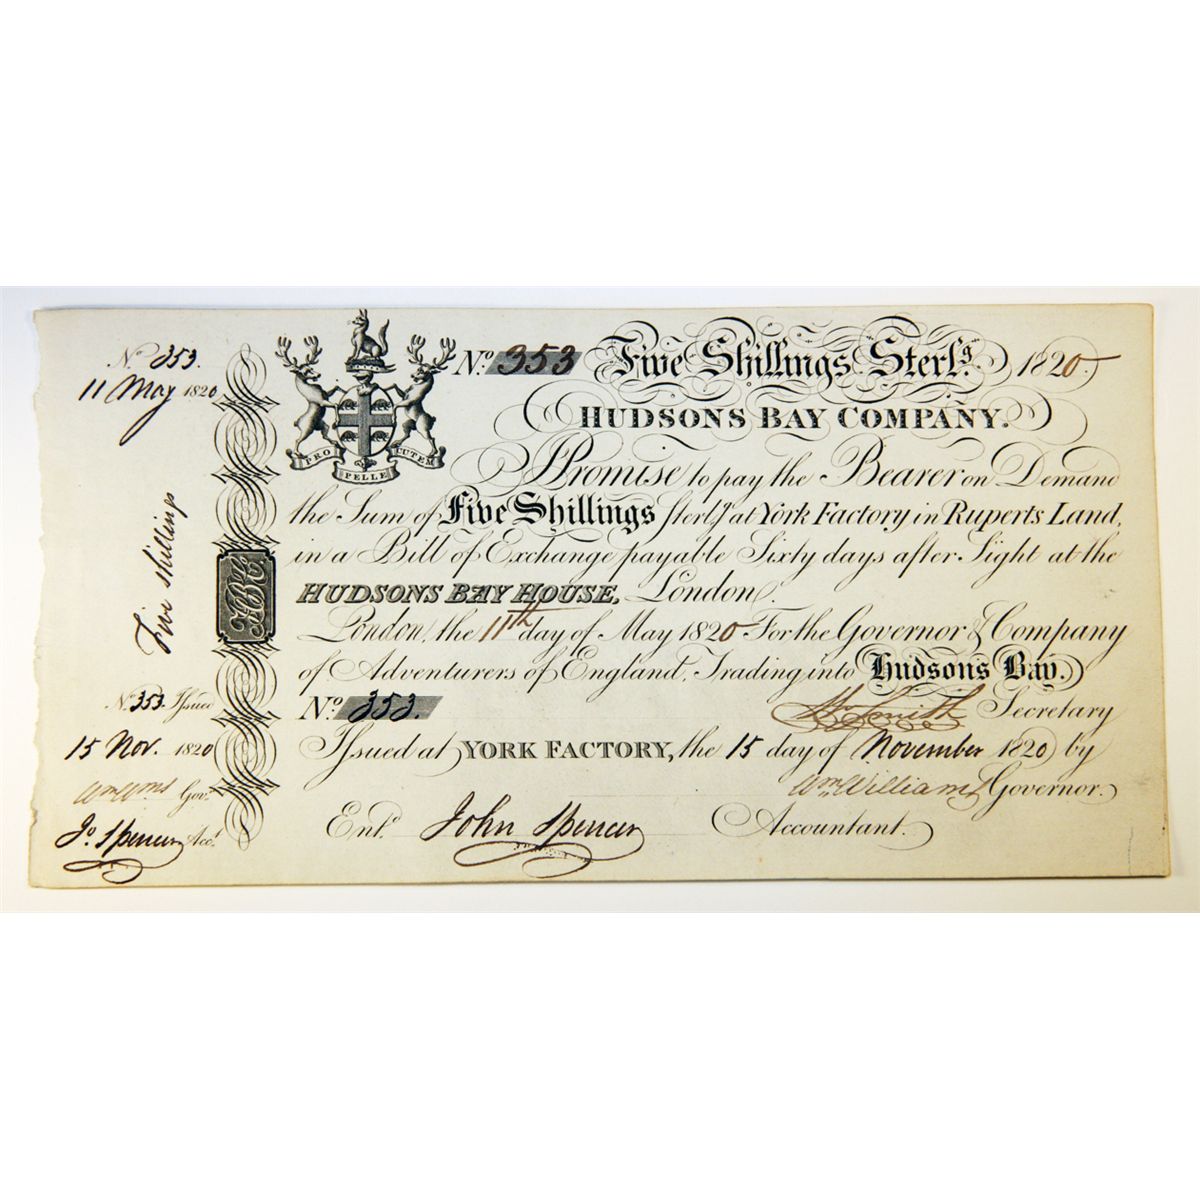 No. 353.
11 May 1820
Five Shillings
HB Co.
No. 353 Issued
15 Nov. 1820
Wm. Wms Govr.
Jo. Spencer Acct.
PRO PELLE CUTEM
No. 353 Five Shillings Sterlg. 1820
HUDSONS BAY COMPANY.
I Promise to pay the Bearer on Demand
the Sum of Five Shillings Sterlg. at York Factory in Ruperts Land,
in a Bill of Exchange payable Sixty days after Sight at the
HUDSONS BAY HOUSE, London.
London, the 11th day of May 1820 For the Governor & Company
of Adventurers of England, Trading into Hudsons Bay.
No. 353. Smith Secretary
Issued at YORK FACTORY, the 15 day of November 1820 by
Wm. Williams Governor.
Entd. John Spencer Accountant.